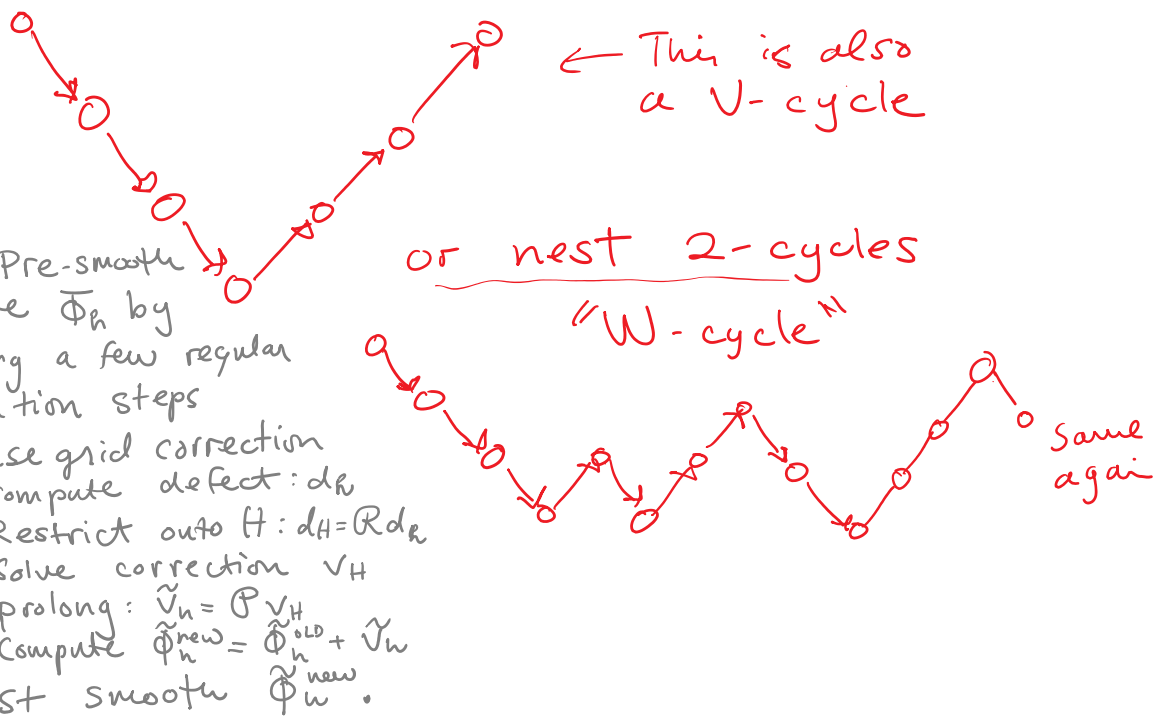 ← This is also
a V-cycle
or nest 2-cycles
"W-cycle"
Same
again
Pre-smooth
e Φ̄h by
g a few regular
tion steps
se grid correction
ompute defect: dh
Restrict onto H: dH = R dh
Solve correction vH
prolong: ṽh = P vH
Compute Φ̃h^new = Φ̃h^OLD + ṽh
st smooth Φ̃h^new.